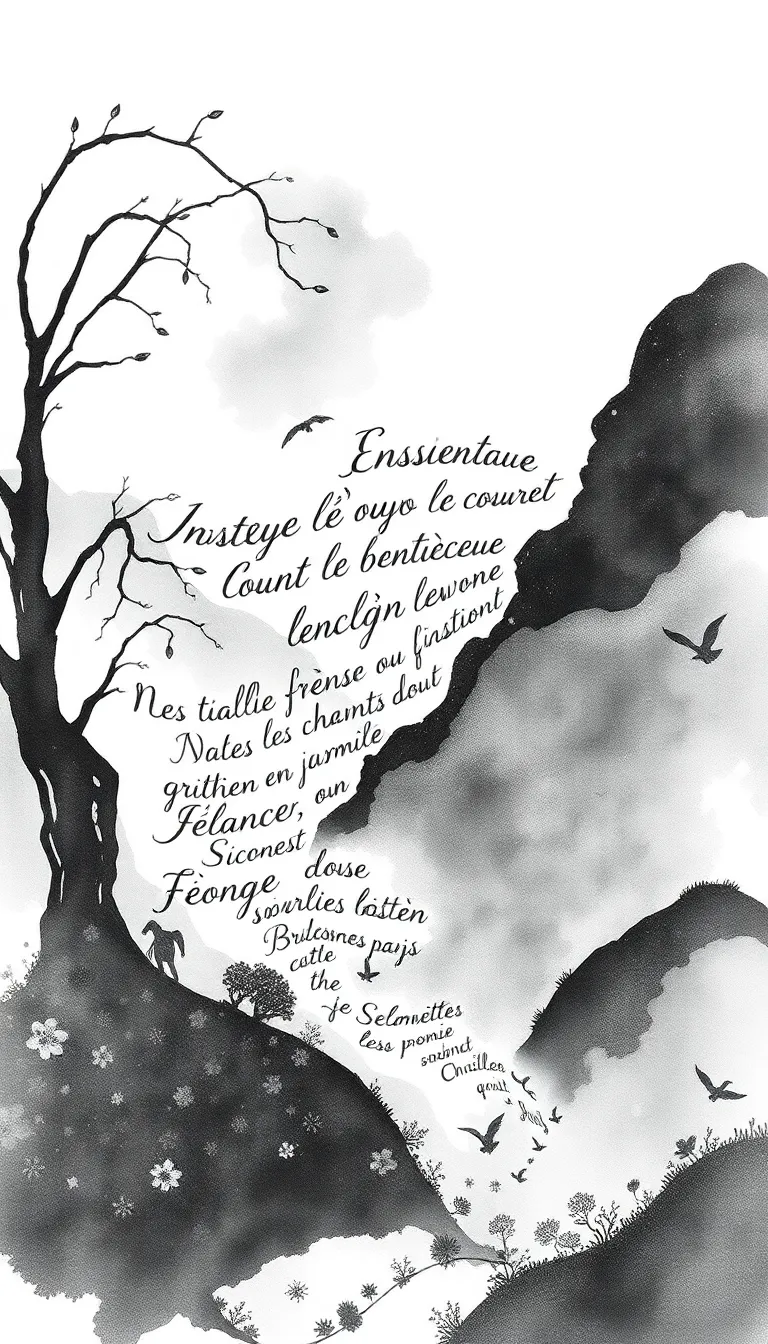 Enssientaue
Jnsteye lè ouyo le couuret
Count le bentièceue
lenclġn lewone
Nes tiallie frènse ou finstiont
Nates les chamts dout
grithen en jarmile
Jélancer, oun
Siconest
Fèonge douse
listèn
Brilcosnes pays
catle
the
je Selomettes
less promie
Onnilles